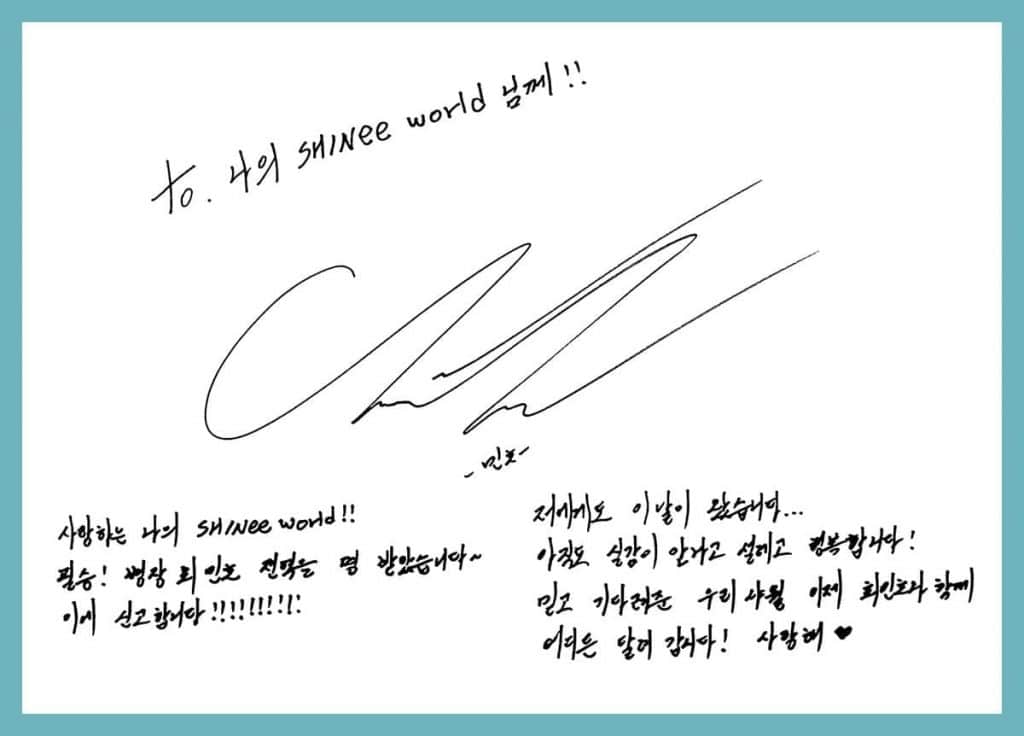 to. 나의 SHINee world 님께!!
-민호-
사랑하는 나의 SHINee world!!
필승! 병장 최민호 전역을 명 받았습니다~
이에 신고합니다!!!!!!!!!
저에게도 이 날이 왔습니다...
아직도 실감이 안나고 설레고 행복합니다!
믿고 기다려준 우리 샤월 이제 최민호와 함께
어디든 달려 갑시다! 사랑해 ♥